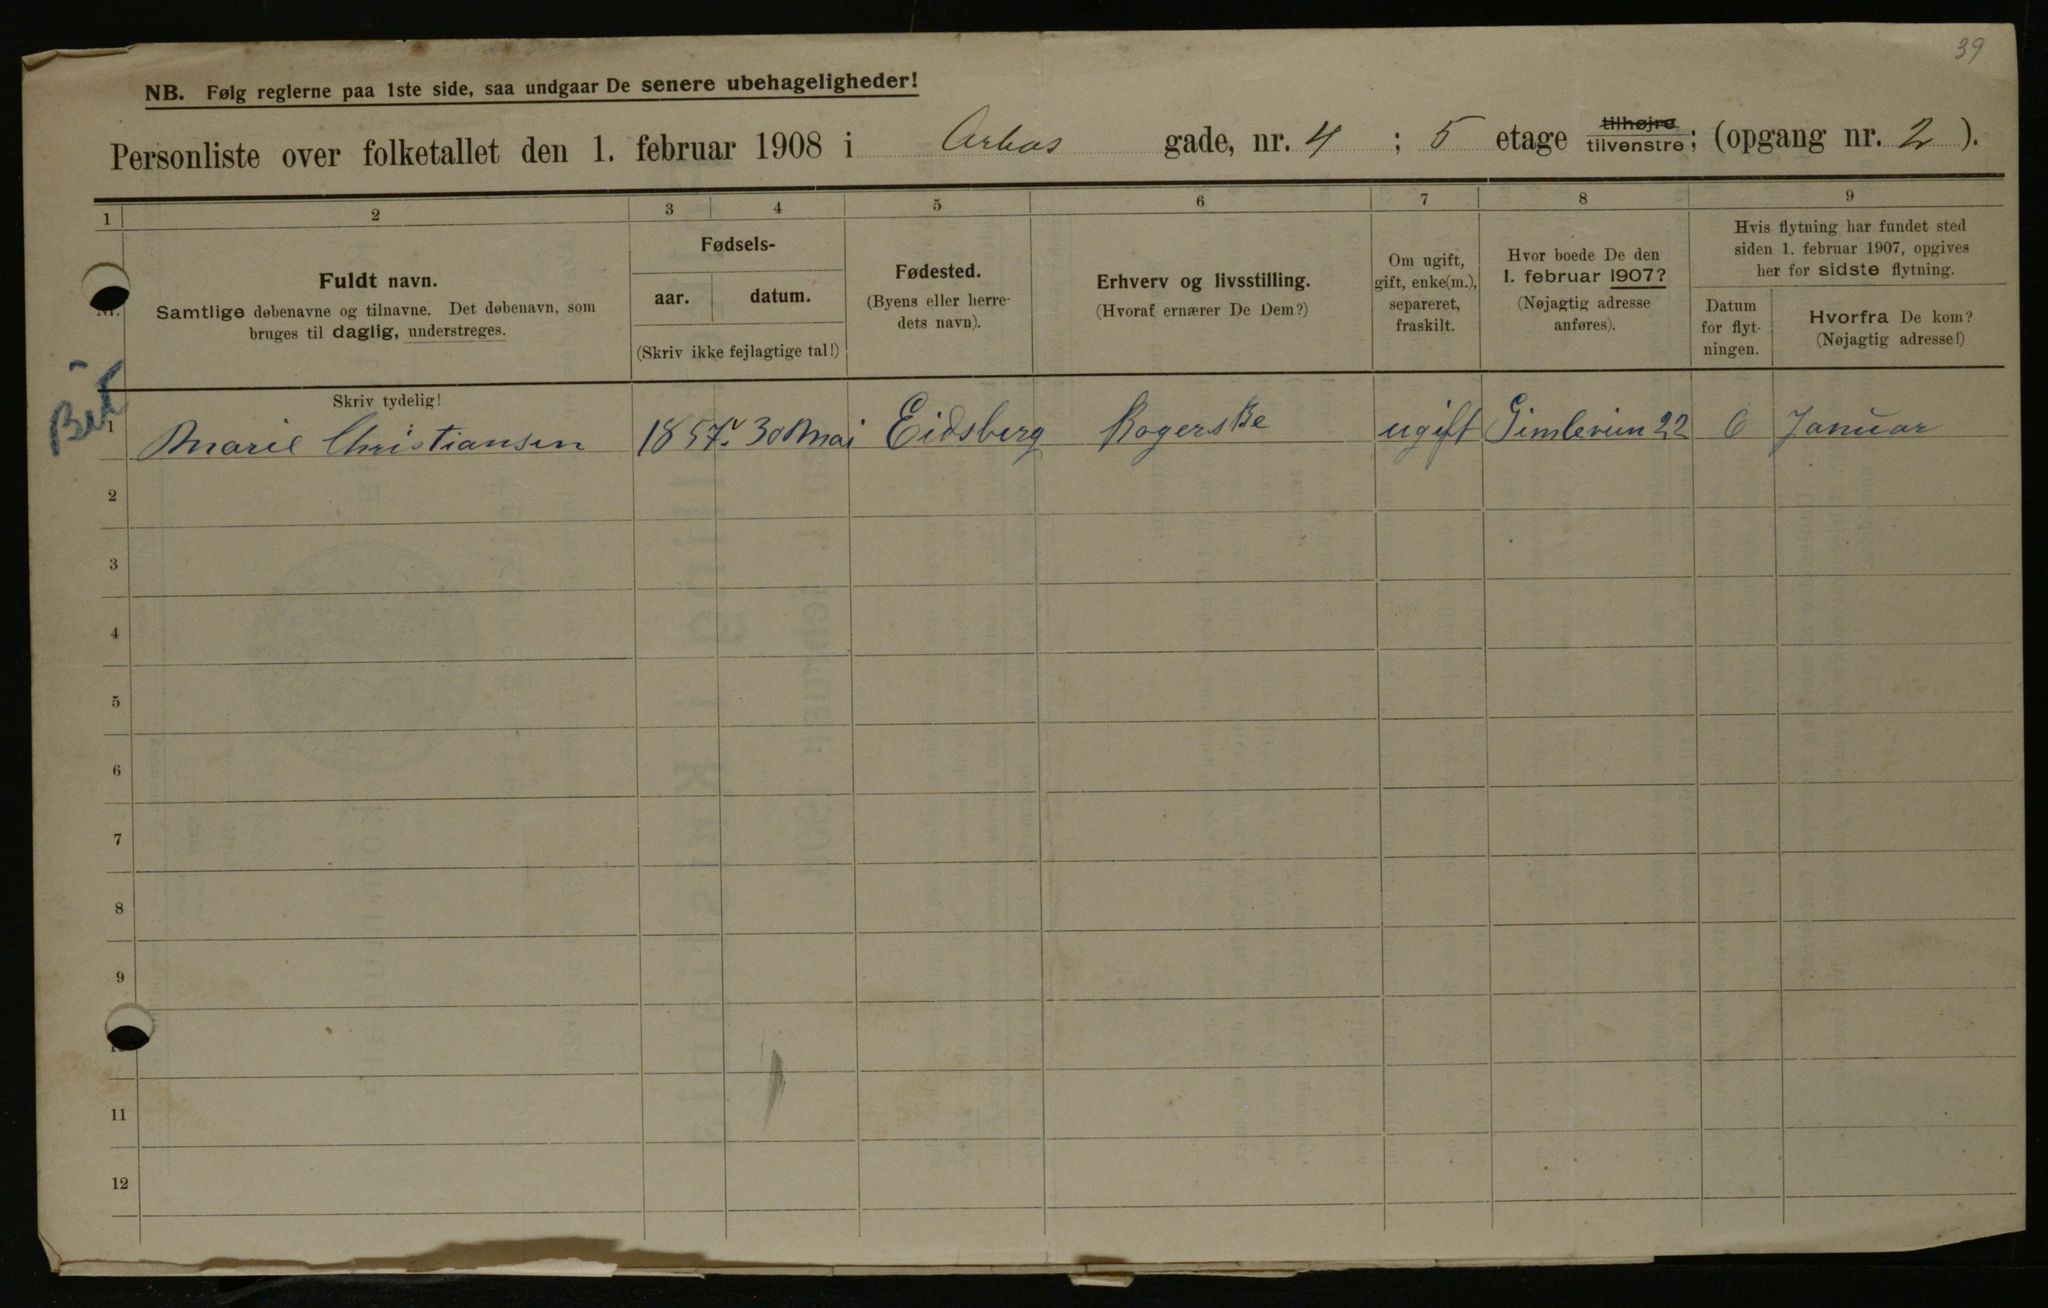 39
NB. Følg reglerne paa 1ste side, saa undgaar De senere ubehageligheder!
Personliste over folketallet den 1. februar 1908 i Arbos gade, nr. 4 ; 5 etage tilhøjre tilvenstre; (opgang nr. 2 ).
1 2 3 4 5 6 7 8 9
Nr.
Fuldt navn.
Samtlige døbenavne og tilnavne. Det døbenavn, som
bruges til daglig, understreges.
Fødsels-
aar. datum.
(Skriv ikke fejlagtige tal!)
Fødested.
(Byens eller herre-
dets navn).
Erhverv og livsstilling.
(Hvoraf ernærer De Dem?)
Om ugift,
gift, enke(m.),
separeret,
fraskilt.
Hvor boede De den
1. februar 1907?
(Nøjagtig adresse
anføres).
Hvis flytning har fundet sted
siden 1. februar 1907, opgives
her for sidste flytning.
Datum
for flyt-
ningen.
Hvorfra De kom?
(Nøjagtig adresse!)
Skriv tydelig!
1 Marie Christiansen 1857 30 Mai Eidsberg ugift 22 6 Januar
2
3
4
5
6
7
8
9
10
11
12